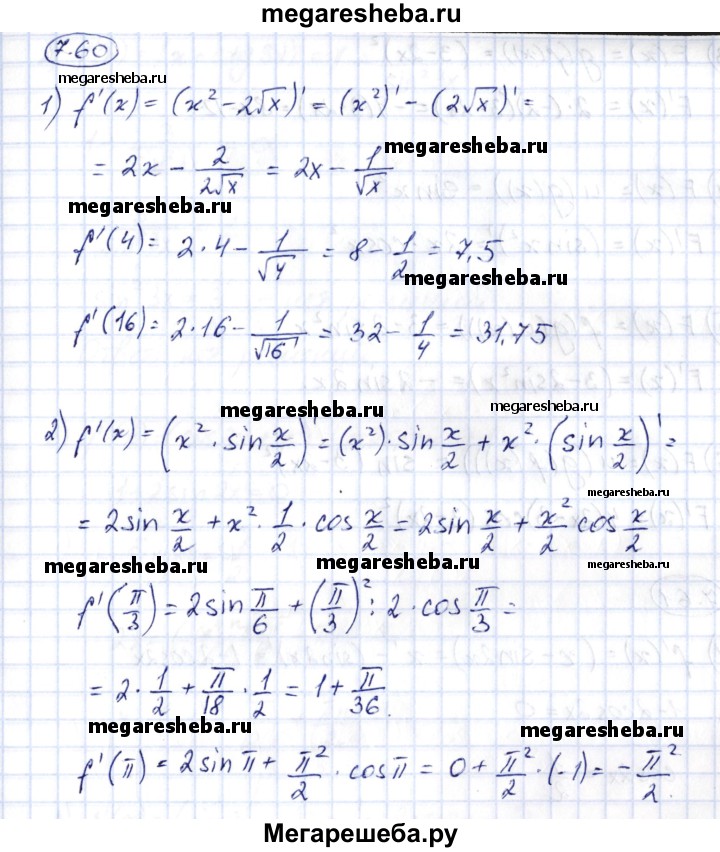 megaresheba.ru
7.60
megaresheba.ru
1) f'(x) = (x² - 2√x)' = (x²)' - (2√x)' =
megaresheba.ru
= 2x - 2/(2√x) = 2x - 1/√x
megaresheba.ru
f'(4) = 2·4 - 1/√4 = 8 - 1/2 = 7,5
megaresheba.ru
f'(16) = 2·16 - 1/√16 = 32 - 1/4 = 31,75
megaresheba.ru
megaresheba.ru
2) f'(x) = (x² · sin x/2)' = (x²) · sin x/2 + x² · (sin x/2)' =
megaresheba.ru
= 2 sin x/2 + x² · 1/2 · cos x/2 = 2 sin x/2 + x²/2 cos x/2
megaresheba.ru
megaresheba.ru
megaresheba.ru
f'(π/3) = 2 sin π/6 + (π/3)² : 2 · cos π/3 =
= 2 · 1/2 + π/18 · 1/2 = 1 + π/36.
megaresheba.ru
megaresheba.ru
f'(π) = 2 sin π + π²/2 · cos π = 0 + π²/2 · (-1) = - π²/2.
Мегарешеба.ру